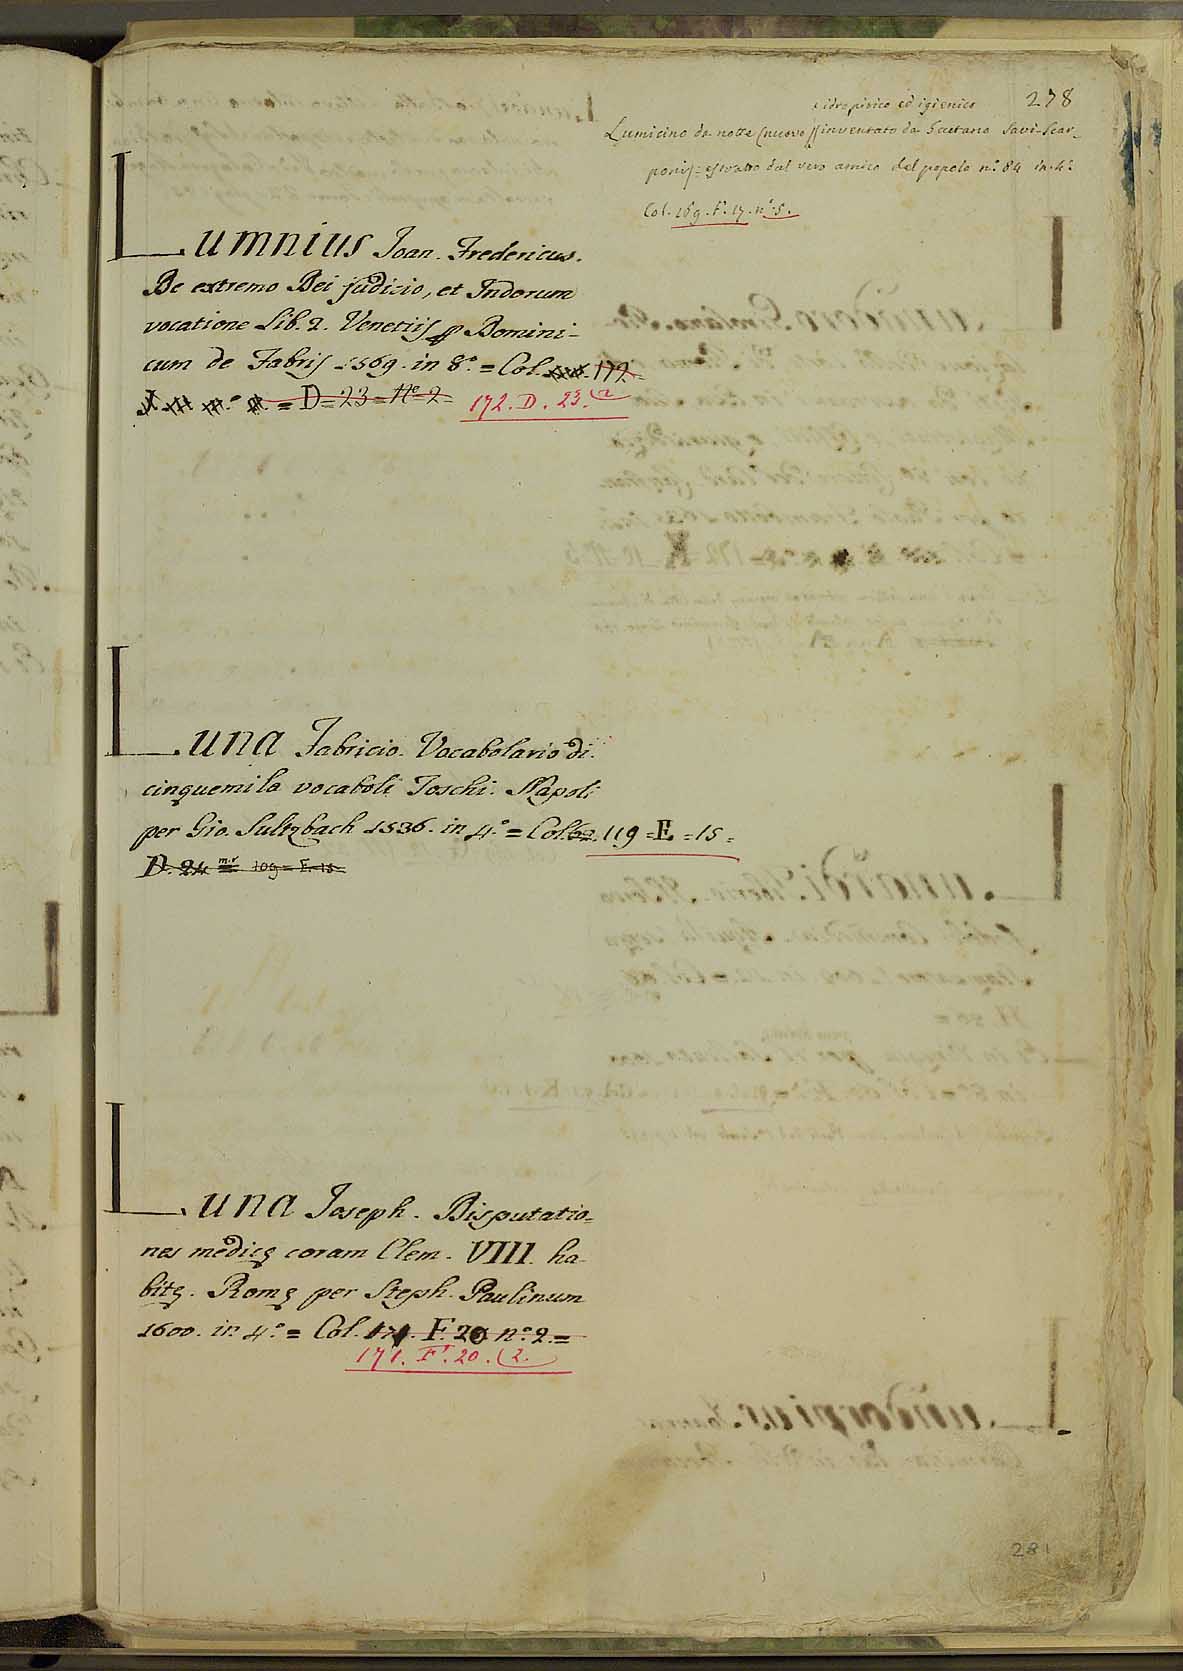 278
idropirico ed igienico
Lumicino da notte (nuovo) inventato da Gaetano Savi-Scar-
ponij = estratto dal vero amico del popolo n.º 84 in-4º
Col. 169. Fº. 17. nº. 5.
Lumnius Joan. Fredericus.
De extremo Dei judicio, et Indorum
vocatione Lib. 2. Venetiis p Domini-
cum de Fabris 1569. in 8º. = Col. 172.
= D = 23 = Nº 2 =
172. D. 23. (2
Luna Fabricio. Vocabolario di
cinquemila vocaboli Toschi. Napoli
per Gio. Sultzbach 1536. in 4.º = Col. 62. 119 = E = 15 =
D. 24 109 = E. 15
Luna Joseph. Disputatio=
nes medicę coram Clem. VIII. ha-
bitę. Romę per Steph. Paulinum
1600. in 4.º = Col. 171. F. 20 nº. 2. =
171. Fº. 20. (2.
281